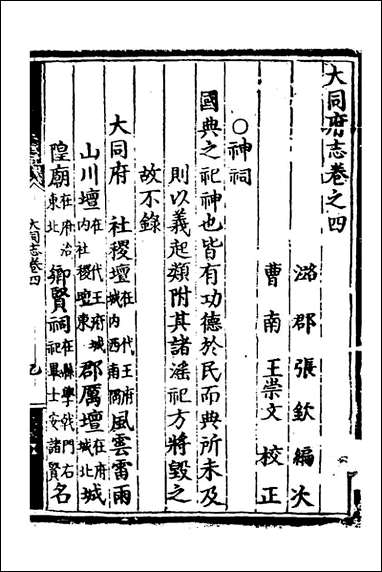 大同府志卷之四
潞郡張欽編次
曹南王崇文校正
○神祠
國典之祀神也皆有功德於民而典所未及
則以義起類附其諸滛祀方將毀之
故不錄
大同府　社稷壇在代王府城内西南隅風雲雷雨
山川壇在代王府城内社稷壇東郡厲壇在府城北城
隍廟在府治東北鄉賢祠在縣學㦸門右祀畢士安諸賢名
大同志卷四